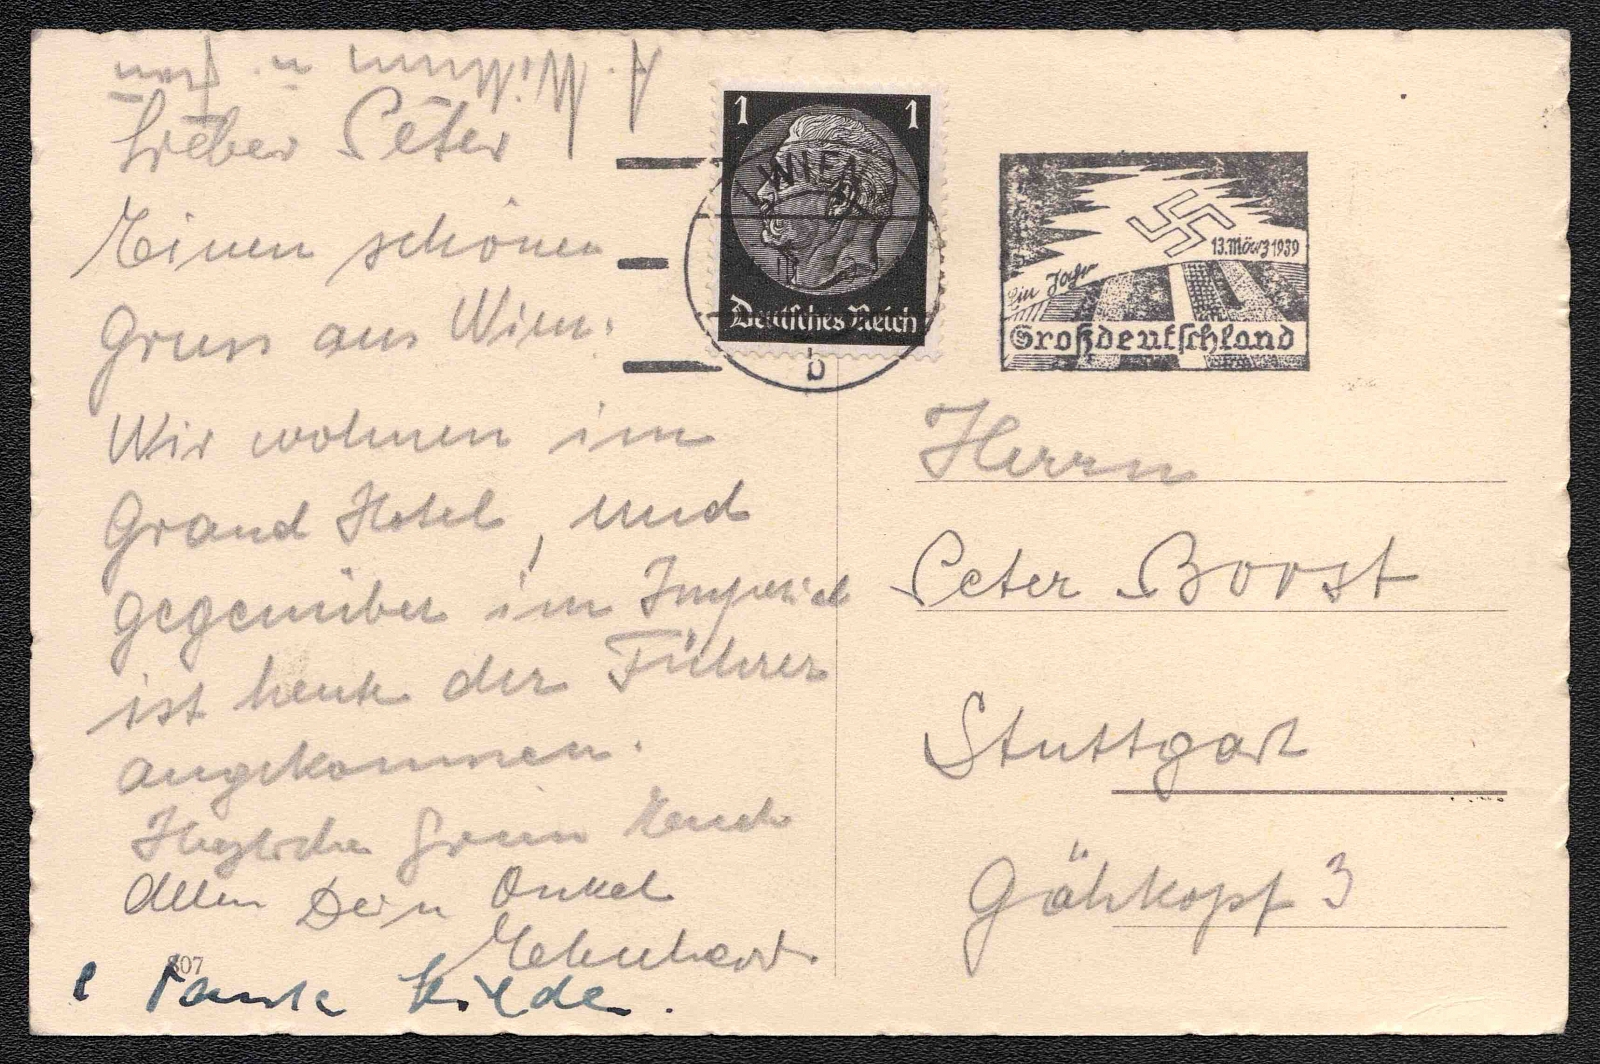 A. Widmann u. Frau
Lieber Peter
Einen schönen
Gruss aus Wien.
Wir wohnen im
Grand Hotel, und
gegenüber im Imperial
ist heute der Führer
angekommen.
Herzliche Grüsse Euch
Allen Dein Onkel
Tante Hilde.
807
1 1
Deutsches Reich
WIEN
b
13. März 1939
Ein Jahr
Großdeutschland
Herrn
Peter Boost
Stuttgart
Gähkopf 3